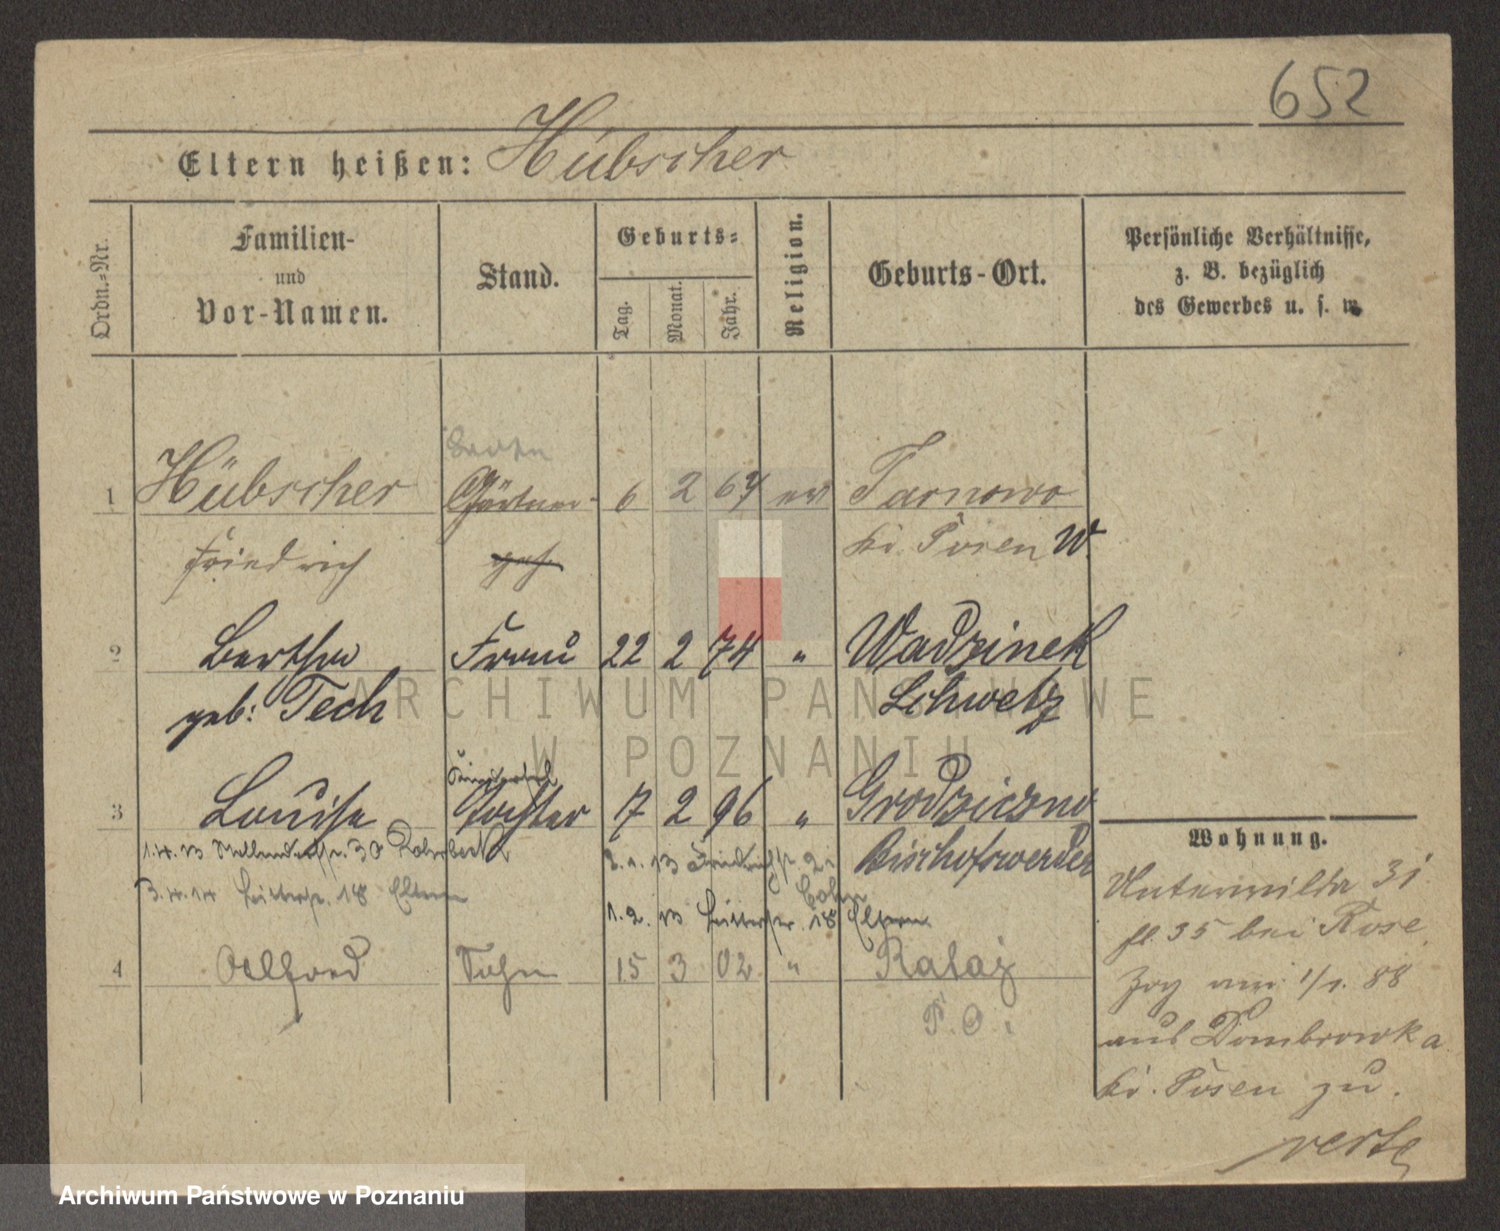 652
Eltern heißen: Hübscher
Ordn.-Nr.
Familien-
und
Vor-Namen.
Stand.
Geburts-
Tag.
Monat.
Jahr.
Religion.
Geburts-Ort.
Persönliche Verhältnisse,
z. B. bezüglich
des Gewerbes u. s. w.
1 Hübscher Gärtner 6 2 67 ev Tarnowo
Friedrich Kr. Posen W.
2 Bertha Frau 22 2 74 " Wadzinek
geb: Tech Schwetz
3 Louise Tochter 17 2 96 " Grodziczno
Bischofswerder
1.4.13 30
3.4.14 18 Eltern
1.2.13 18 Eltern
4 Alfred Sohn 15 3 02 " Rataj
P. O.
Wohnung.
Unterwilda 31
35 bei Rose
Zog am 1/1. 88
aus Dombrowka
Kr. Posen zu.
verte
ARCHIWUM PAŃSTWOWE
W POZNANIU
Archiwum Państwowe w Poznaniu